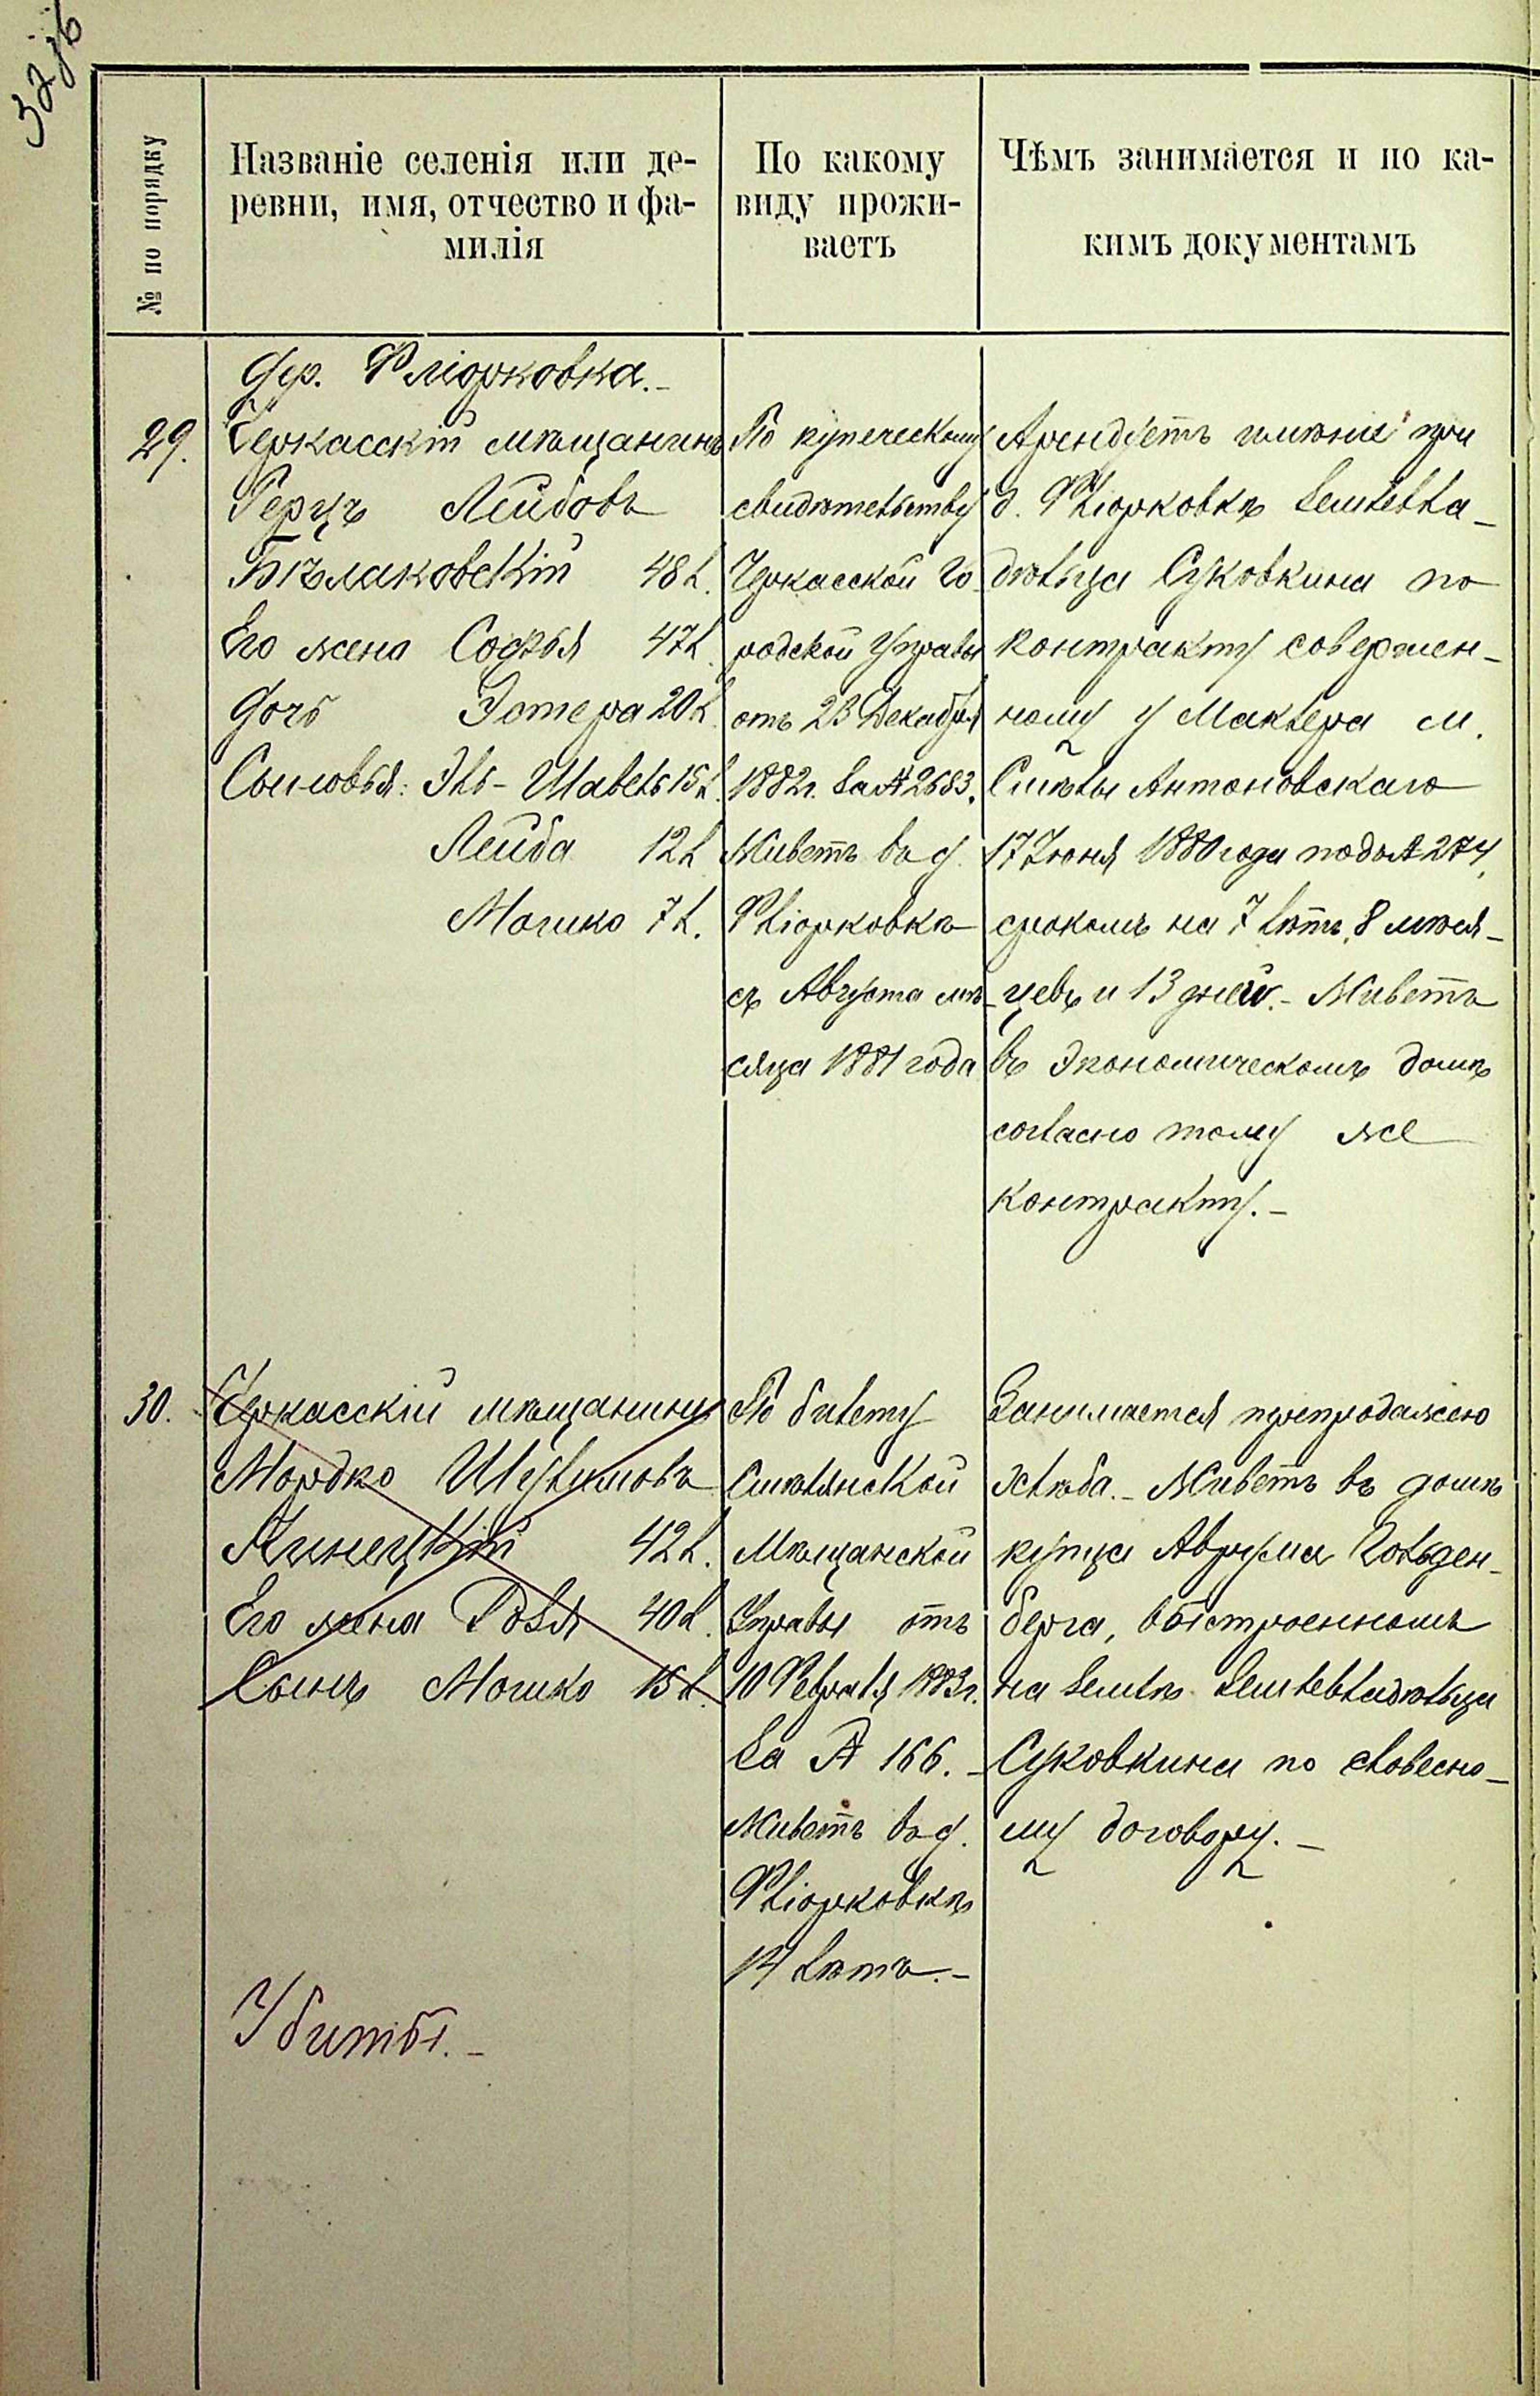 № по порядку
Названіе селенія или де-
ревни, имя, отчество и фа-
милія
По какому
виду прожи-
ваетъ
Чѣмъ занимается и по ка-
кимъ документамъ
Дер. Фліорковка.-
29.
Черкасскій мѣщанинъ
Герцъ Лейбовъ
Бѣлаковскій 48 л.
Его жена Софья 47 л.
Дочь Эстера 20 л.
Сыновья: Эль-Шавель 15 л.
Лейба 12 л.
Мошко 7 л.
По купеческому
свидѣтельству
Черкасской Го-
родской Управы
отъ 23 Декабря
1882 г. за № 2683.
Живетъ въ д.
Фліорковкѣ
съ Августа мѣ-
сяца 1881 года
Арендуетъ имѣніе при
д. Фліорковкѣ землевла-
дѣльца Суковкина по
контракту совершен-
ному у Маклера м.
Смѣлы Антоновскаго
17 Іюня 1880 года подъ № 274,
срокомъ на 7 лѣтъ, 8 мѣся-
цевъ и 13 дней.- Живетъ
въ экономическомъ домѣ
согласно тому же
контракту.-
30.
Черкасскій мѣщанинъ
Мордко Шулимовъ
Линецкій 42 л.
Его жена Розя 40 л.
Сынъ Мошко 15 л.
По билету
Смѣлянской
Мѣщанской
Управы отъ
10 Февраля 1883 г.
за № 166.-
Живетъ въ д.
Фліорковкѣ
14 лѣтъ.-
Занимается перепродажею
хлѣба.- Живетъ въ домѣ
купца Аврума Гольден-
берга, выстроенномъ
на землѣ землевладѣльца
Суковкина по словесно-
му договору.-
Убиты.-